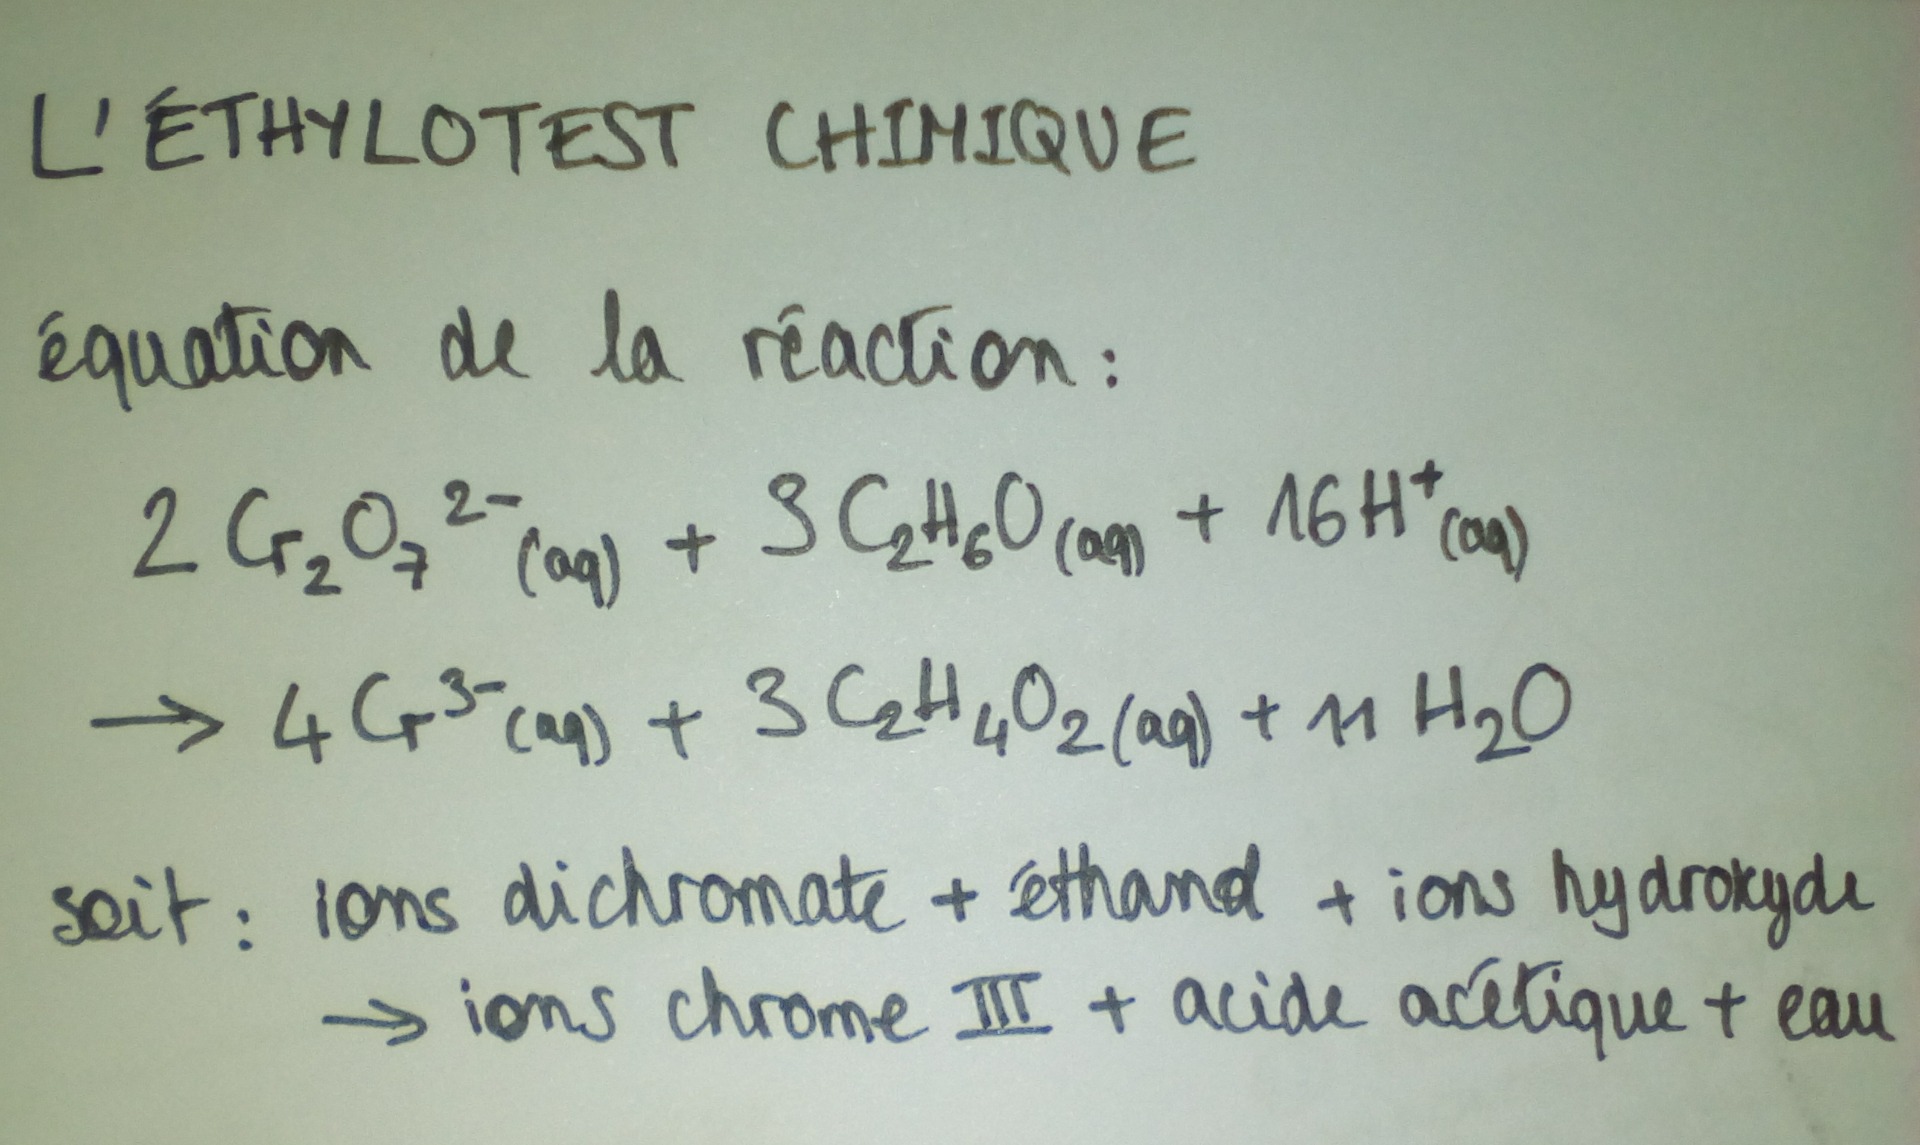 L'ÉTHYLOTEST CHIMIQUE
équation de la réaction :
2 Cr₂O₇²⁻(aq) + 3 C₂H₆O(aq) + 16 H⁺(aq)
→ 4 Cr³⁻(aq) + 3 C₂H₄O₂(aq) + 11 H₂O
soit : ions dichromate + éthanol + ions hydroxyde
→ ions chrome III + acide acétique + eau